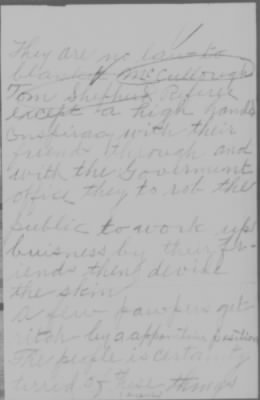 They are no law to
blank of McCullough
Tom Shepherd Referee
except a high hand
conspiracy with their
friends through and
with the Goverment
office they to rob the
public to work up
buisness by their fr-
iends then devide
the skin
a few pawpers get
ritch by a appointive position
The people is certainly
tirred of these things